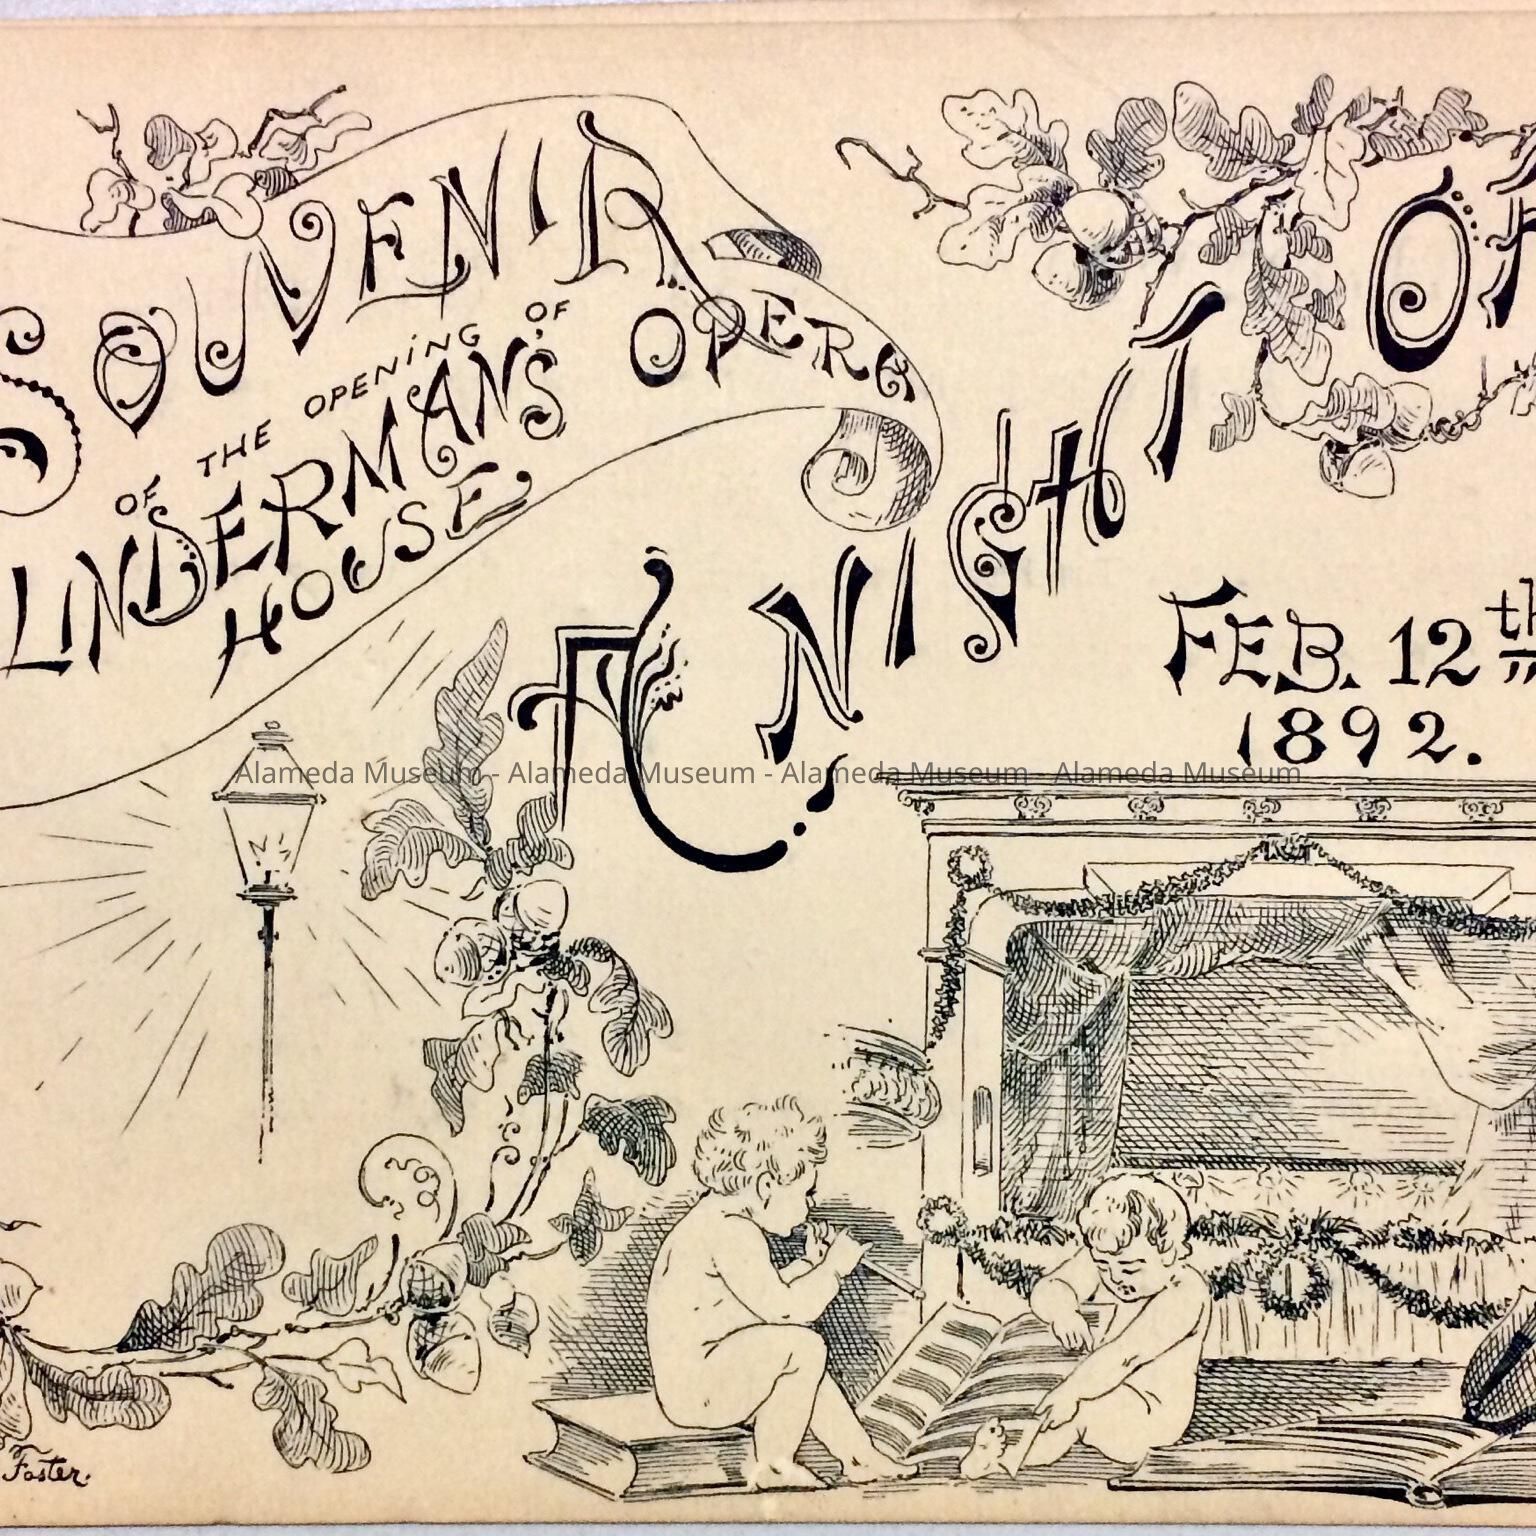 SOUVENIR
OF THE OPENING OF
LINDERMAN'S OPERA
HOUSE
A NIGHT OF
FEB. 12th
1892.
Alameda Museum - Alameda Museum - Alameda Museum - Alameda Museum
Foster.